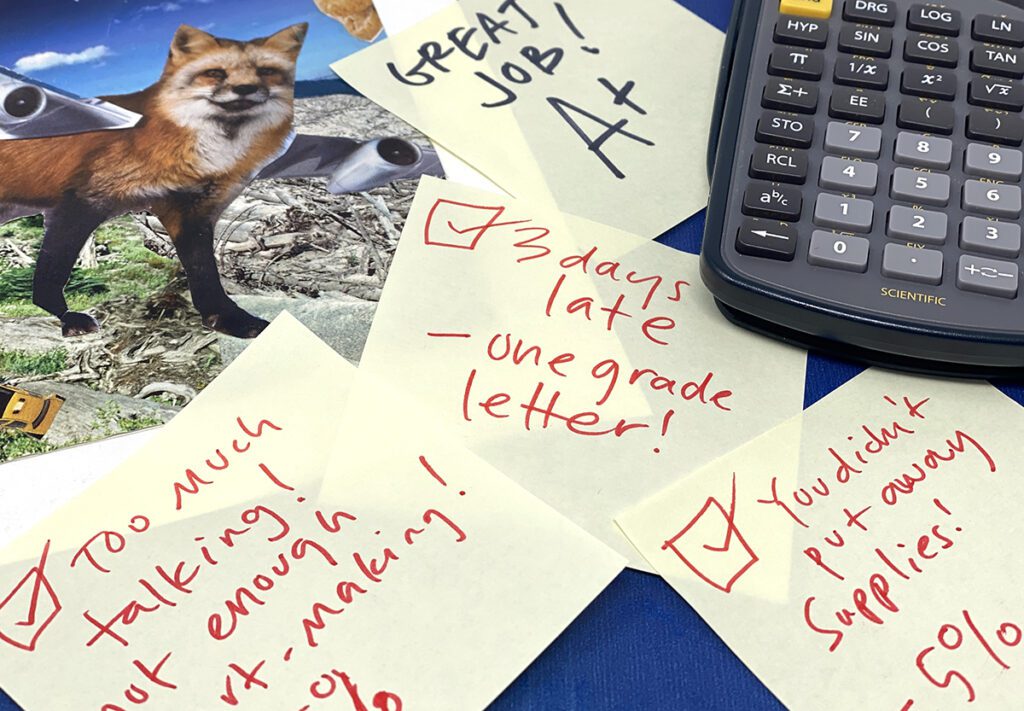 GREAT
JOB!
A+
3 days
late
- one grade
letter!
Too much
talking!
not enough
art-making!
You didn't
put away
supplies!
-5%
DRG
LOG
LN
HYP
SIN
COS
TAN
π
1/x
x²
√x
Σ+
EE
(
)
STO
7
8
9
RCL
4
5
6
aᵇ/c
1
2
3
0
.
SCIENTIFIC